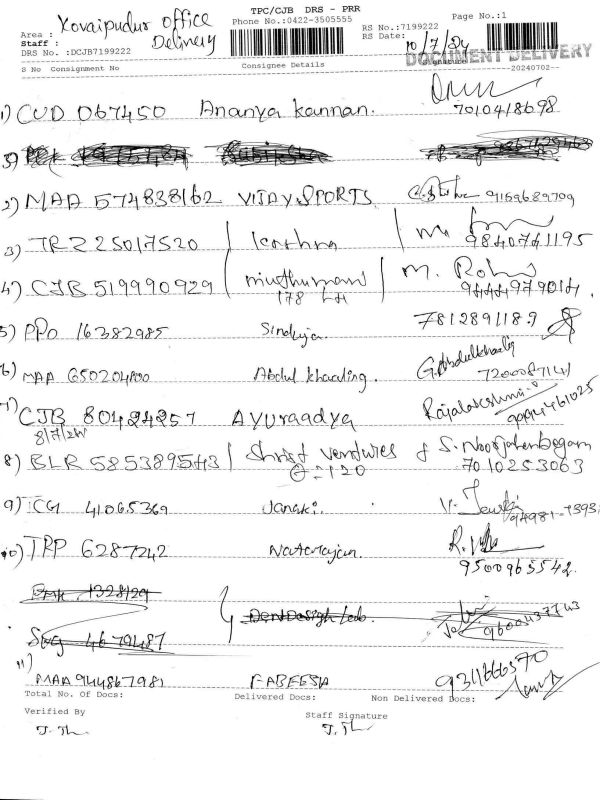 TPC/CJB DRS - PRR
Area : Kovaipudur office
Phone No.:0422-3505555
RS No.:7199222
Page No.:1
Staff : Delivery
RS Date: 10/7/24
DRS No. :DCJB7199222
DOCUMENT DELIVERY
Signature
S No Consignment No Consignee Details
20240702--
1) CUD 067450 Ananya kannan. 7010418698
2) MAA 574838162 VIJAY SPORTS 9159689709
3) TRZ 25017520 Karthna 9840741195
4) CJB 519990929 muthumani M. 9444979014.
178
5) PPO 16382985 Sinduja 7812891189
6) MAA 650204800 Abdul khaaliq. G. Abdulkhaaliq
7200087141
7) CJB 80424257 AYURAADYA Rajalakshmi
8/7/24
8) BLR 585389543 Christ Ventures S. Noorjahanbegam
120 7010253063
9) ICG 41065369 Janaki.
10) TRP 6287242 Natarajan. R.
9500965542.
1328129
Dent Desigh Lab. 9600437743
4679487
11) MAA 944867981 FABEESA 9311666370
Total No. Of Docs: Delivered Docs: Non Delivered Docs:
Verified By Staff Signature